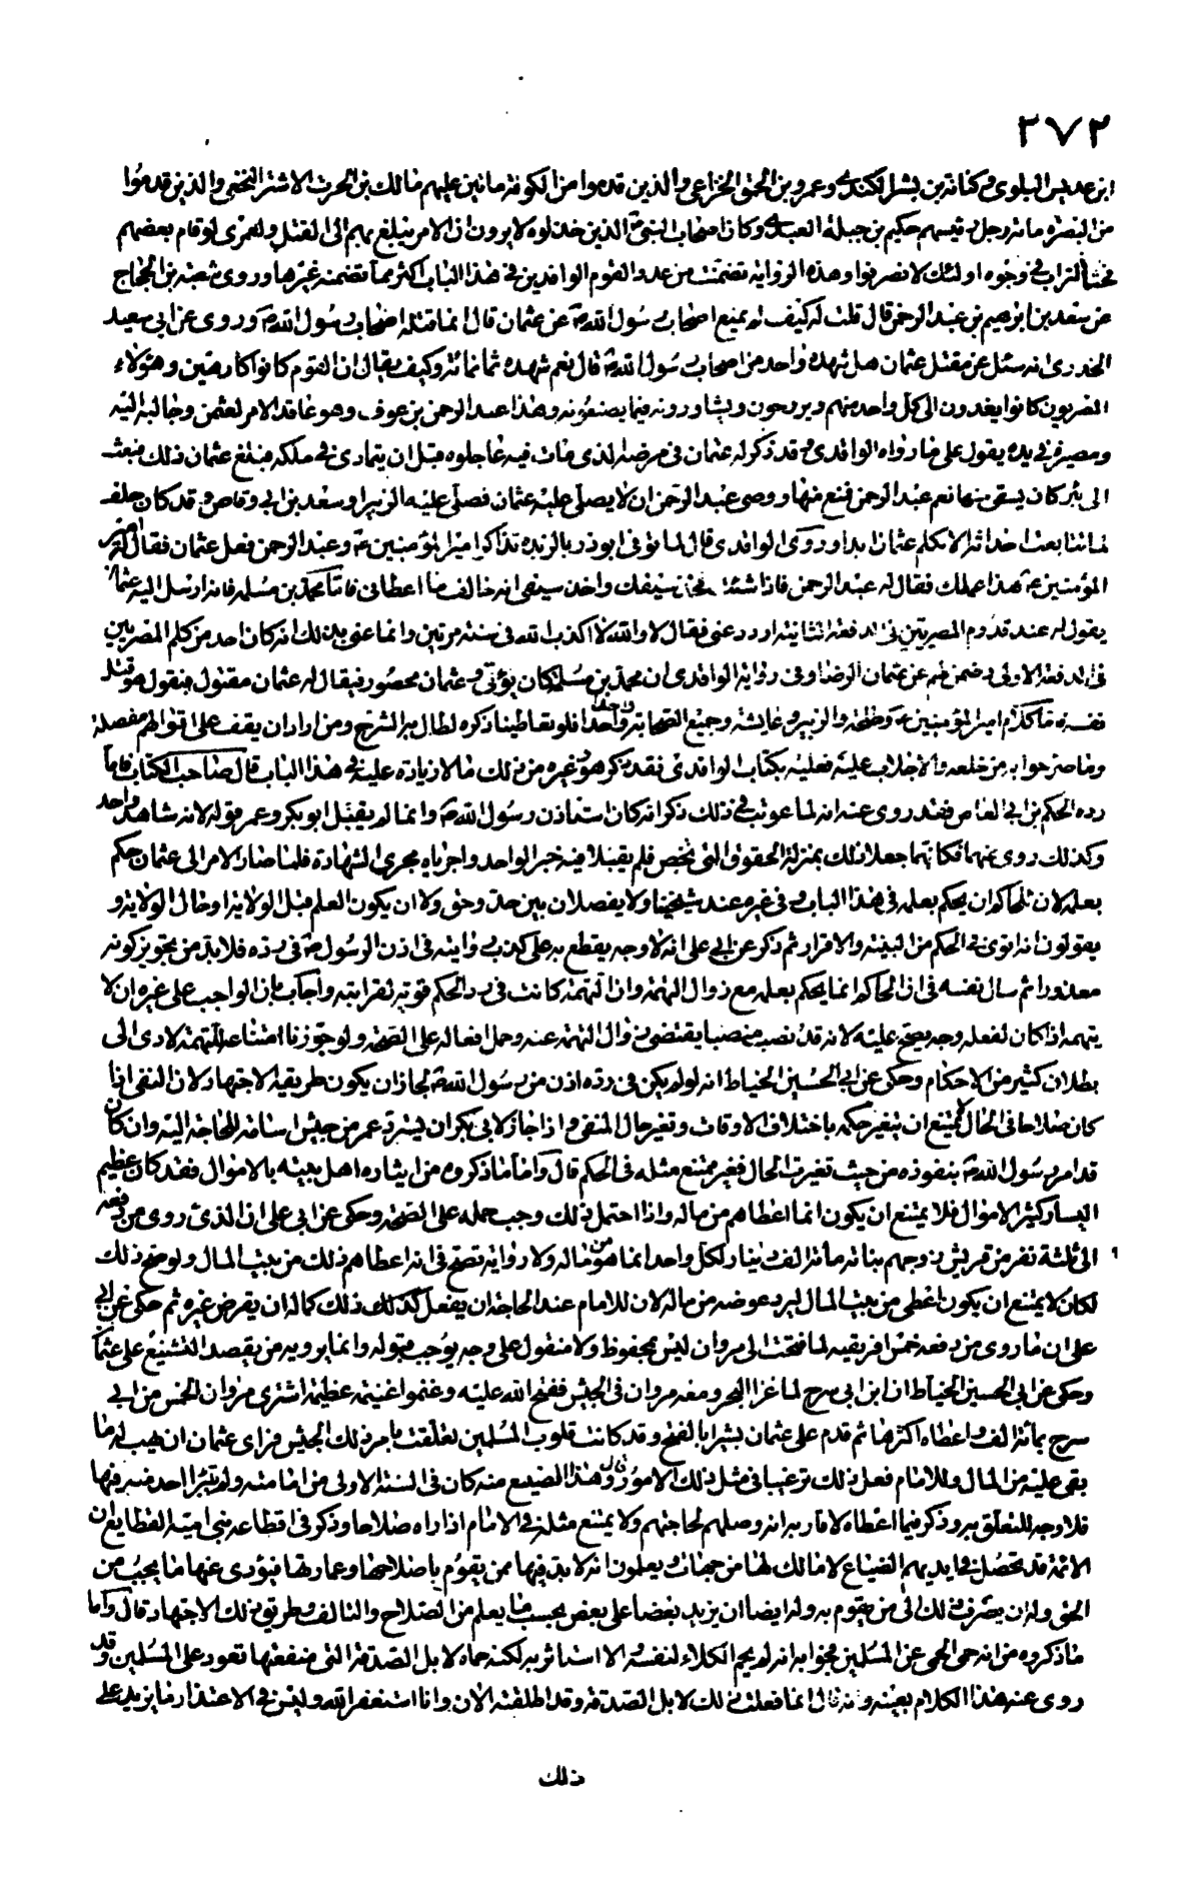 ٢٧٢
ابن عديس البلوى و كنانة بن بشر الكندى و عمرو بن الحمق الخزاعى والذين قدموا من الكوفة مأتين عليهم مالك بن الحرث الاشتر النخعى والذين قدموا
من البصرة مائة رجل رئيسهم حكيم بن جبلة العبدى وكان اصحاب النبى ص الذين خذلوه لا يرون ان الامر يبلغ بهم الى القتل ولعمرى لو قام بعضهم
فحثا التراب فى وجوه اولئك لانصرفوا وهذه الرواية تضمنت من عدد القوم الوافدين فى هذا الباب اكثر مما تضمنه غيرها وروى شعبة بن الحجاج
عن سعد بن ابرهيم بن عبد الرحمن قال قلت له كيف لم يمنع اصحاب رسول الله ص عن عثمان قال انما قتله اصحاب رسول الله ص وروى عن ابى سعيد
الخدرى انه سئل عن مقتل عثمان هل شهده واحد من اصحاب رسول الله ص قال نعم شهده ثمانمائة وكيف يقال ان القوم كانوا كارهين وهؤلاء
المصريون كانوا يغدون الى كل واحد منهم ويروحون ويشاورونه فيما يصنعونه وهذا عبد الرحمن بن عوف وهو عاقد الامر لعثمن وجالبه اليه
ومصيره فى يده يقول على ما رواه الواقدى وقد ذكر له عثمان فى مرضه الذى مات فيه عاجلوه قبل ان يتمادى فى ملكه فبلغ عثمان ذلك فبعث
الى بئر كان يسقى منها نعم عبد الرحمن فمنع منها ووصى عبد الرحمن ان لا يصلى عليه عثمان فصلى عليه الزبير او سعد بن ابى وقاص وقد كان حلف
لما تتابعت احداثه الا يكلم عثمان ابدا وروى الواقدى قال لما توفى ابوذر بالربذه تذاكر امير المؤمنين ع وعبد الرحمن فعل عثمان فقال امير
المؤمنين ع هذا عملك فقال له عبد الرحمن فاذا شئت فخذ سيفك واخذ سيفى انه خالف ما اعطانى فاما محمد بن مسلمة فانه ارسل اليه عثمان
يقول له عند قدوم المصريين فى الدفعة الثانية اردد عنى فقال لا والله لا اكذب الله فى سنة مرتين وانما عنى بذلك انه كان احد من كلم المصريين
فى الدفعة الاولى وضمن لهم عن عثمان الرضا وفى رواية الواقدى ان محمد بن مسلمة كان يؤتى و عثمان محصور فيقال له عثمان مقتول فيقول هو قتل
نفسه فاما كلام امير المؤمنين ع وطلحة والزبير وعايشة وجميع الصحابة واحدا واحدا فلو تعاطينا ذكره لطال به الشرح ومن اراد ان يقف على اقوالهم مفصلة
وما صرحوا به من خلعه والاجلاب عليه فعليه بكتاب الواقدى فقد ذكر هو و غيره من ذلك ما لا زيادة عليه فى هذا الباب قال صاحب الكتاب فاما
رده الحكم بن ابى العاص فقد روى عنه انه لما عوتب فى ذلك ذكر انه كان استأذن رسول الله ص وانما لم يقبل ابو بكر وعمر قوله لانه شاهد واحد
وكذلك روى عنهما فكانهما جعلا ذلك بمنزلة الحقوق التى تخص فلم يقبلا فيه خبر الواحد واجرياه مجرى الشهادة فلما صار الامر الى عثمان حكم
بعلمه لان للحاكم ان يحكم بعلمه فى هذا الباب و فى غيره عند شيخينا ولا يفصلان بين حد وحق ولا ان يكون العلم قبل الولاية او حال الولاية و
يقولون انه اقوى فى الحكم من البينة والاقرار ثم ذكر عن ابى على انه لا وجه يقطع به على كذب روايته فى اذن الرسول ص فى رده فلا بد من تجويز كونه
معذورا ثم سال نفسه فى ان الحاكم انما يحكم بعلمه مع زوال التهمة وان التهمة كانت فى رد الحكم قوية لقرابته واجاب بان الواجب على غيره ان لا
يتهمه اذا كان لفعله وجه يصح عليه لانه قد نصب منصبا يقتضى زوال التهمة عنه وحمل افعاله على الصحة ولو جوزنا امتناعه للتهمة لادى الى
بطلان كثير من الاحكام وحكى عن ابى الحسين الخياط انه لو لم يكن فى رده اذن من رسول الله ص لجاز ان يكون طريقه الاجتهاد لان النفى اذا
كان صلاحا فى الحال لا يمتنع ان يتغير حكمه باختلاف الاوقات وتغير حال المنفى و اذا جاز لابى بكر ان يسترد عمر من جيش اسامة للحاجة اليه وان كان
قد امر رسول الله ص بنفوذه من حيث تغيرت الحال فغير ممتنع مثله فى الحكم قال واما ما ذكروه من ايثاره اهل بيته بالاموال فقد كان عظيم
اليسار كثير الاموال فلا يمتنع ان يكون انما اعطاهم من ماله واذا احتمل ذلك وجب حمله على الصحة وحكى عن ابى على ان الذى روى من دفعه
الى ثلثة نفر من قريش زوجهم بناته مائة الف دينار لكل واحد انما هو من ماله ولا رواية تصح فى انه اعطاهم ذلك من بيت المال ولو صح ذلك
لكان لا يمتنع ان يكون اعطى من بيت المال ليرد عوضه من ماله لان للامام عند الحاجة ان يفعل كذلك ذلك كما له ان يقرض غيره ثم حكى عن ابى
على ان ما روى من دفعه خمس افريقية لما فتحت الى مروان ليس بمحفوظ ولا منقول على وجه يوجب قبوله وانما يرويه من يقصد التشنيع على عثمان
وحكى عن ابى الحسين الخياط ان ابن ابى سرح لما غزا البحر ومعه مروان فى الجيش ففتح الله عليه وغنموا غنيمة عظيمة اشترى مروان الخمس من ابى
سرح بمائة الف واعطاه اكثرها ثم قدم على عثمان بشيرا بالفتح وقد كانت قلوب المسلمين تعلقت بامر ذلك الجيش فراى عثمان ان يهب له ما
بقى عليه من المال وللامام فعل ذلك ترغيبا فى مثل ذلك الامور قال وهذا الصنيع منه كان فى السنة الاولى من امامته ولم يتبرا احد منه فيها
فلا وجه للتعلق به وذكر فيما اعطاه لاقاربه انه وصلهم لحاجتهم ولا يمتنع مثله فى الامام اذا راه صلاحا وذكر فى اقطاعه بنى امية القطايع ان
الائمة قد تحصل فى ايديهم الضياع لا مالك لها من جهات ويعلمون انه لا بد فيها ممن يقوم باصلاحها وعمارتها فيؤدى عنها ما يجب من
الحق وله ان يصرف ذلك الى من يقوم به وله ايضا ان يزيد بعضا على بعض بحسب ما يعلم من الصلاح والتالف وطريق ذلك الاجتهاد قال واما
ما ذكروه من انه حمى الحمى عن المسلمين فجوابه انه لم يحم الكلاء لنفسه الا استاثر به لكنه حماه لابل الصدقة التى منفعتها تعود على المسلمين وقد
روى عنه هذا الكلام بعينه وانه قال انما فعلت ذلك لابل الصدقة وقد اطلقته الان وانا استغفر الله وليس فى الاعتذار ما يزيد على
ذلك